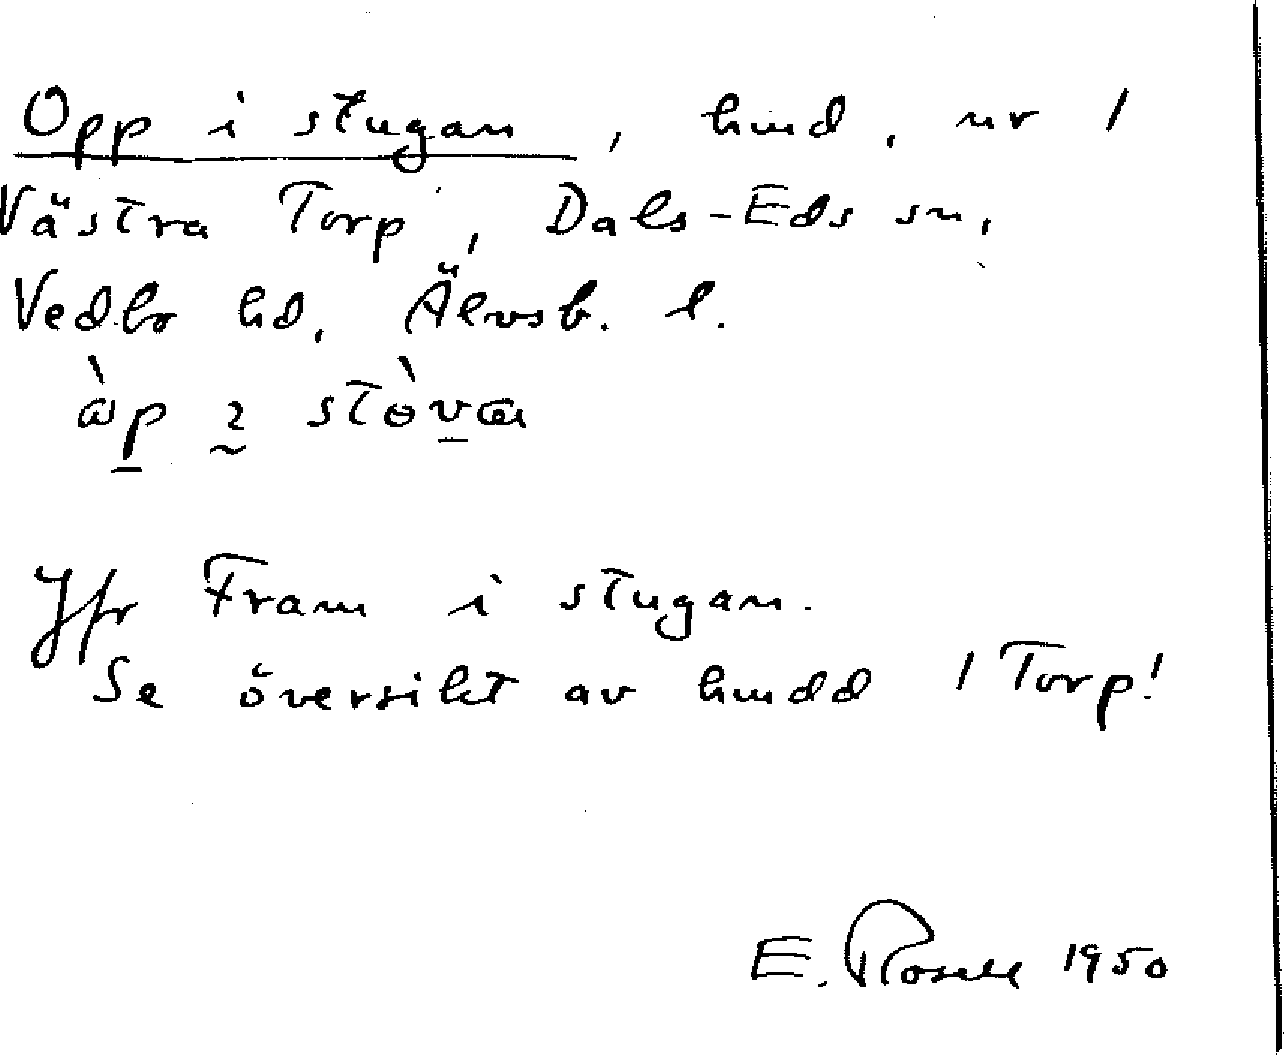 Opp i stugan, hmd, nr 1
Västra Torp, Dals-Eds sn,
Vedbo hd, Älvsb. l.
Jfr Fram i stugan.
Se översikt av hmdd 1 Torp!
E. Rosell 1950